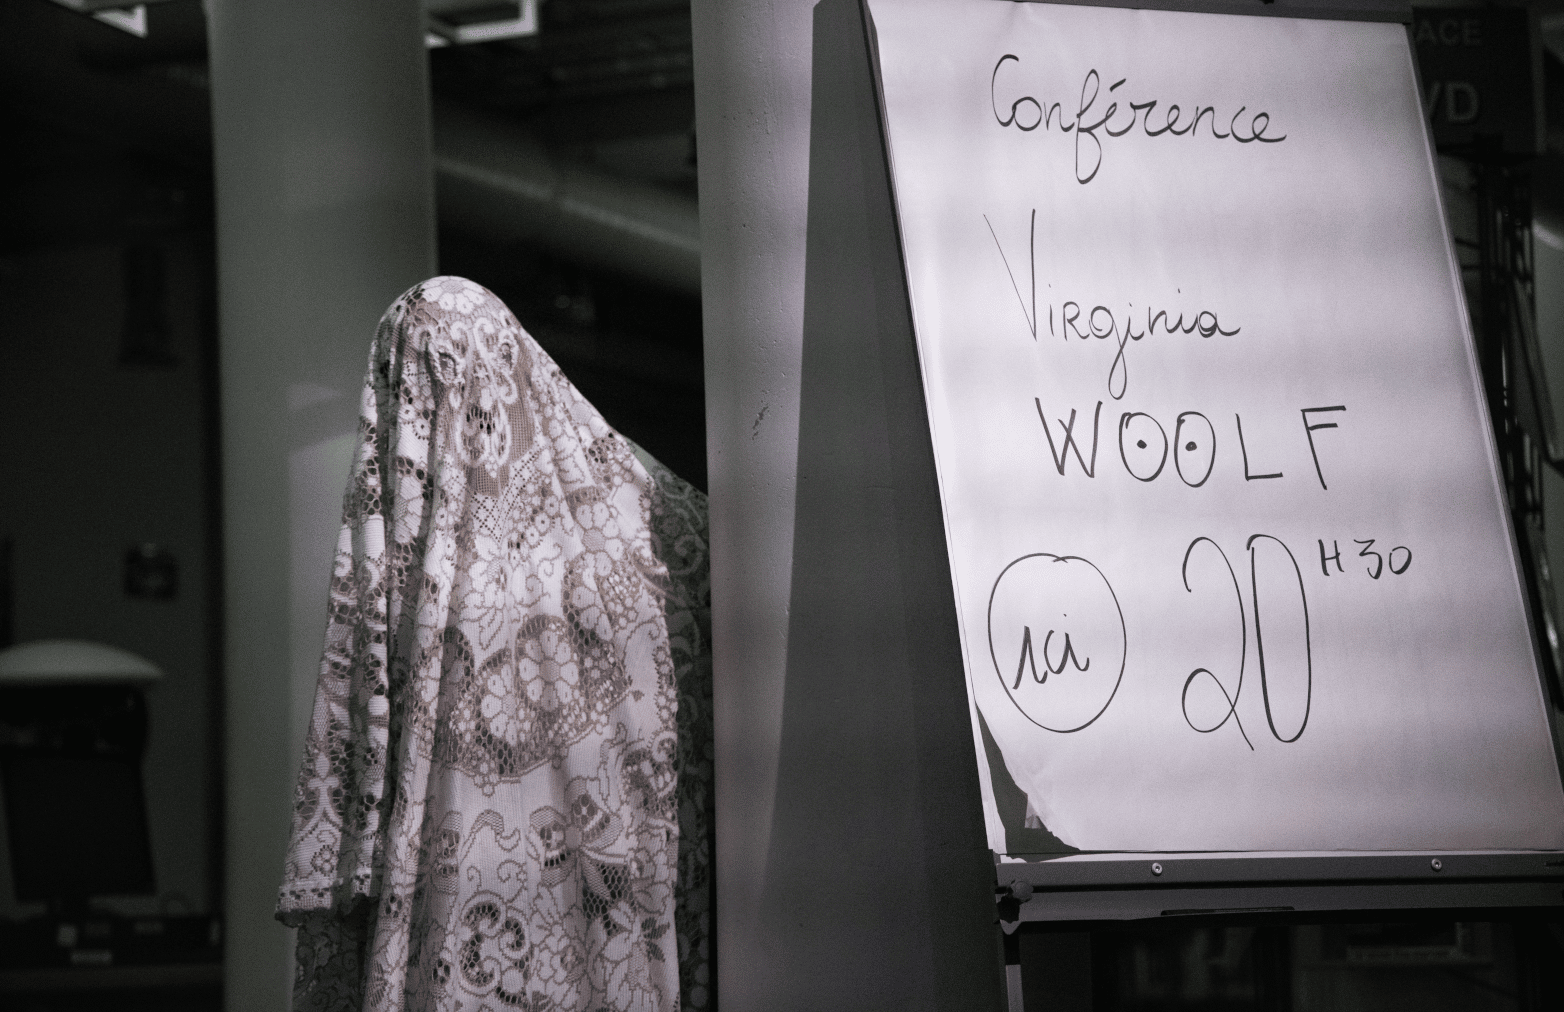 Conférence
Virginia
WOOLF
ici 20H30
ACE
VD